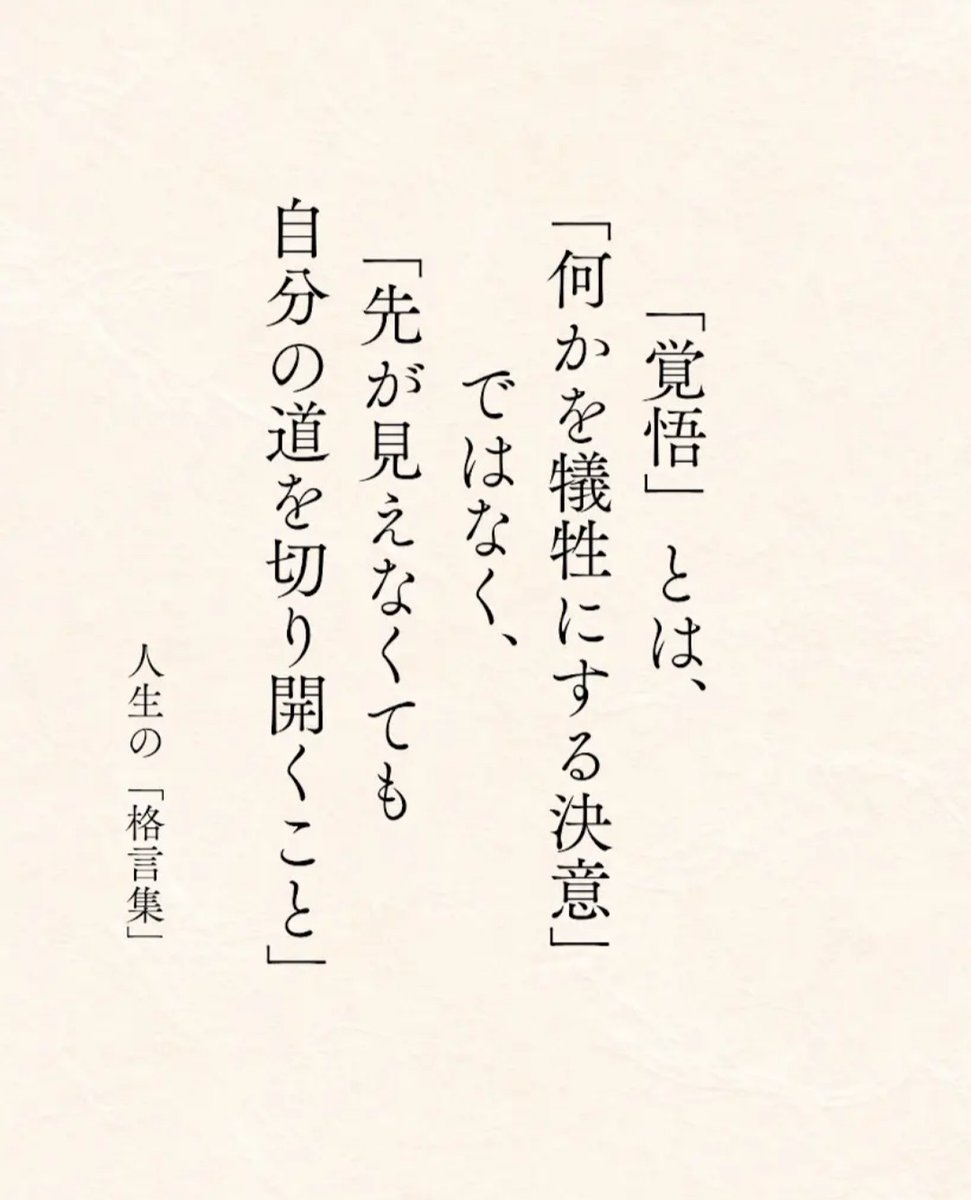 「覚悟」とは、
「何かを犠牲にする決意」
ではなく、
「先が見えなくても
自分の道を切り開くこと」
人生の「格言集」